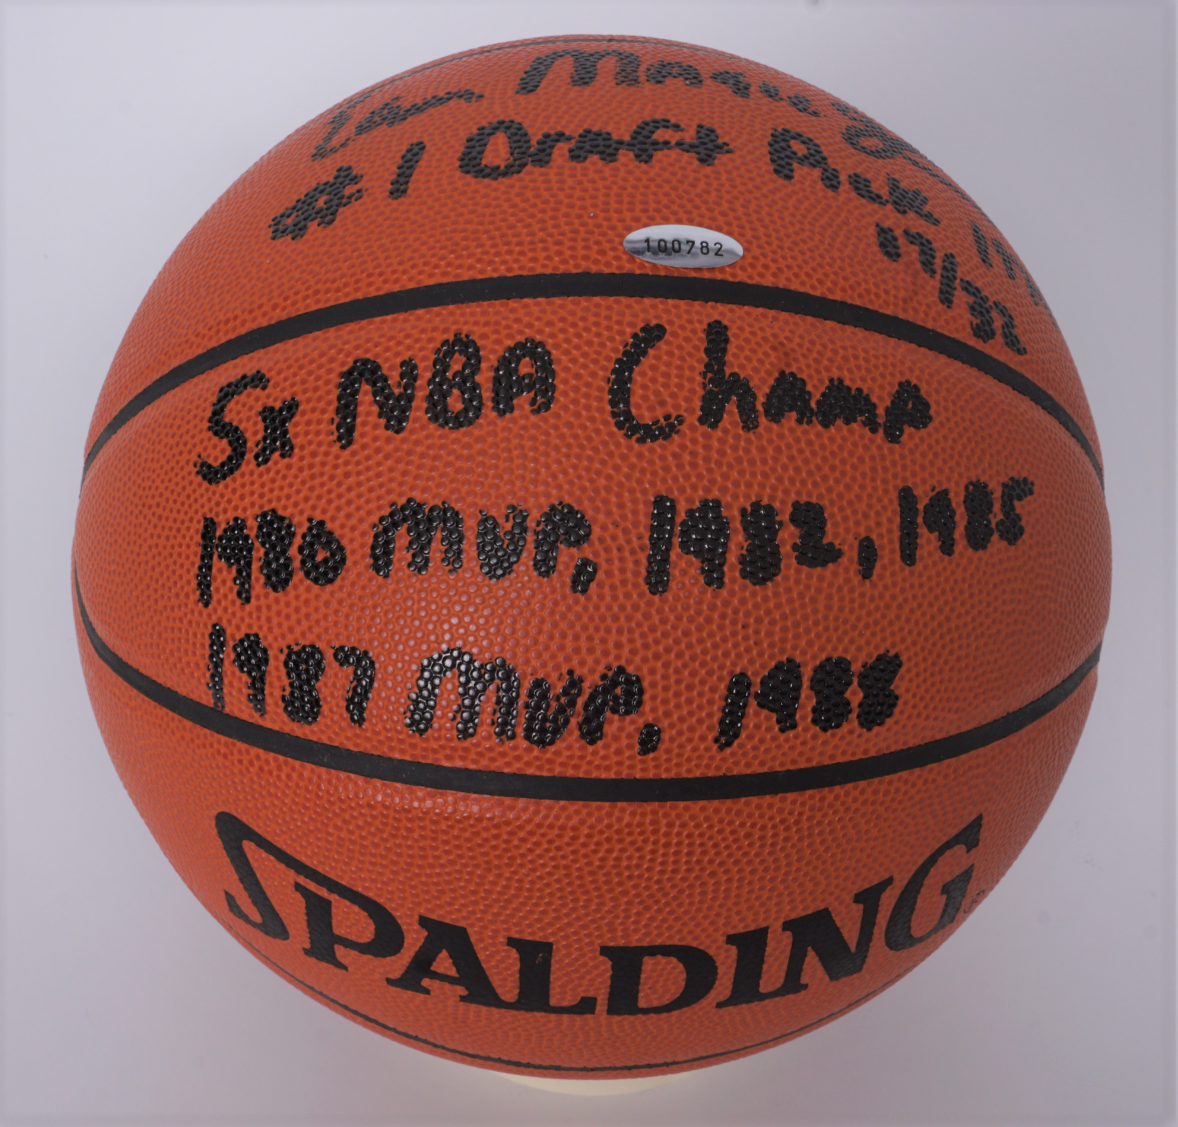 #1 Draft Pick 19
17/32
100782
5x NBA Champ
1980 MVP, 1982, 1985
1987 MVP, 1988
SPALDING